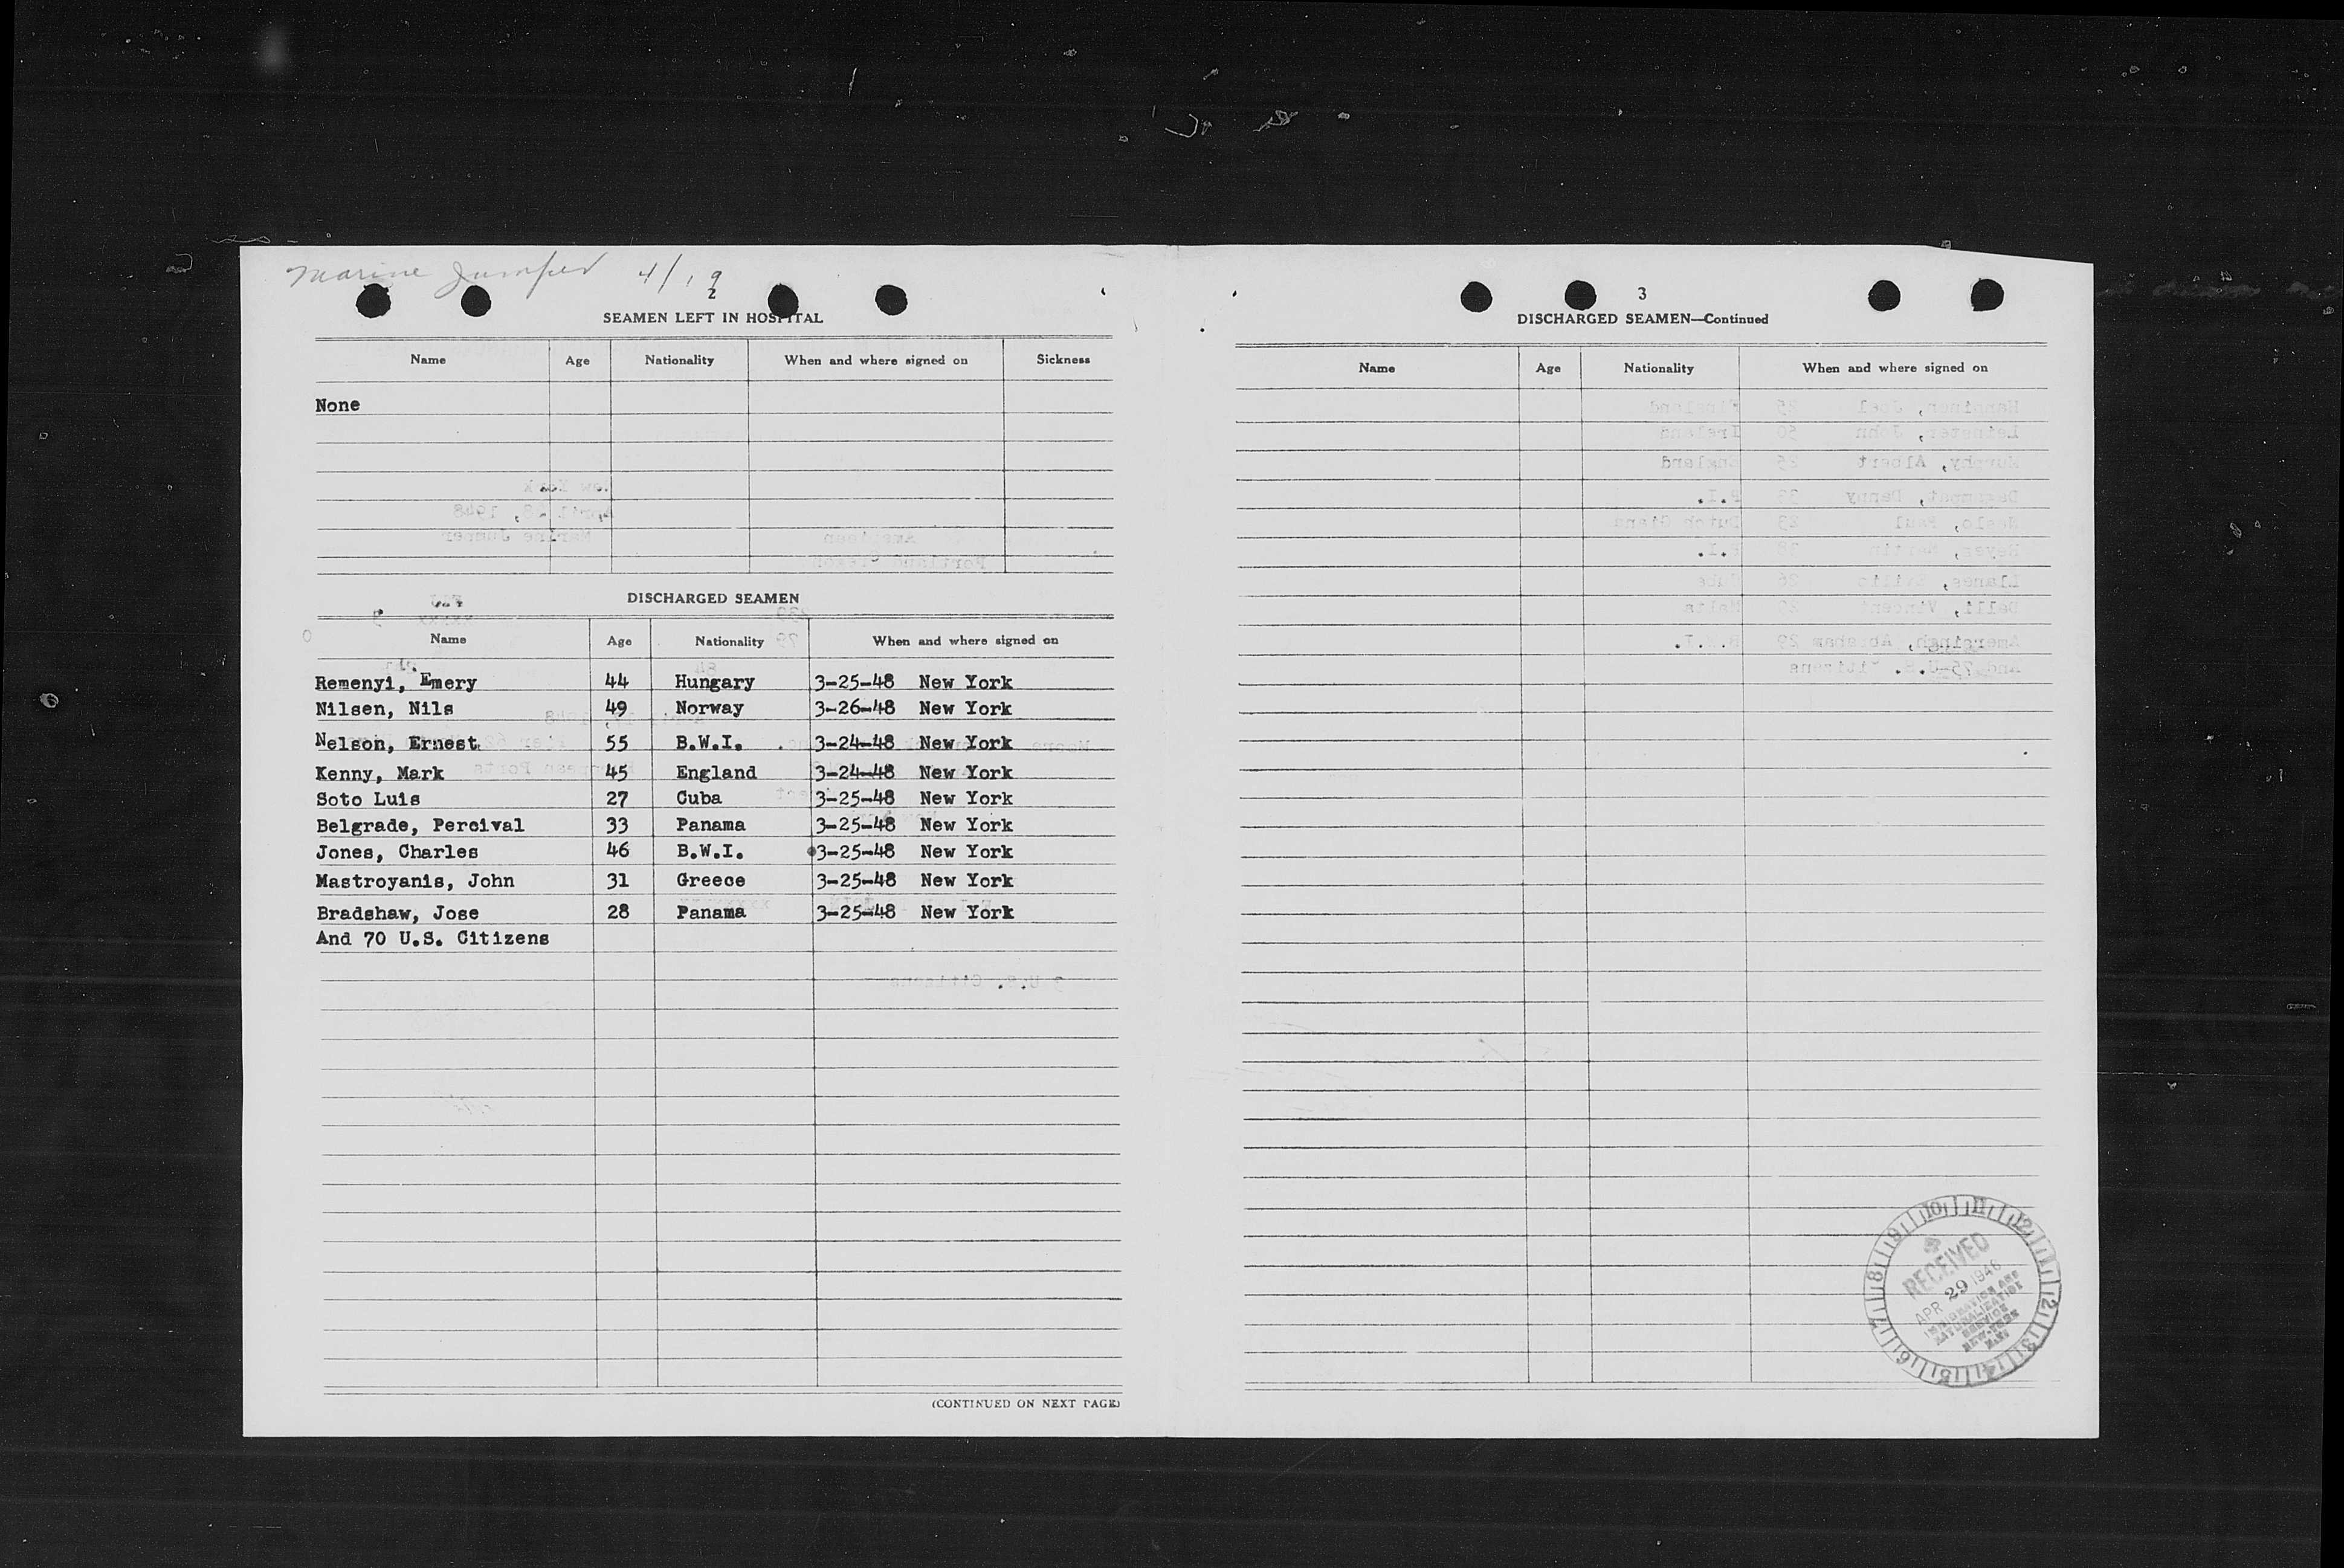 Marine Jumper 4/19
2
SEAMEN LEFT IN HOSPITAL
Name Age Nationality When and where signed on Sickness
None
DISCHARGED SEAMEN
Name Age Nationality When and where signed on
Remenyi, Emery 44 Hungary 3-25-48 New York
Nilsen, Nils 49 Norway 3-26-48 New York
Nelson, Ernest 55 B.W.I. 3-24-48 New York
Kenny, Mark 45 England 3-24-48 New York
Soto Luis 27 Cuba 3-25-48 New York
Belgrade, Percival 33 Panama 3-25-48 New York
Jones, Charles 46 B.W.I. 3-25-48 New York
Mastroyanis, John 31 Greece 3-25-48 New York
Bradshaw, Jose 28 Panama 3-25-48 New York
And 70 U.S. Citizens
(CONTINUED ON NEXT PAGE)
3
DISCHARGED SEAMEN—Continued
Name Age Nationality When and where signed on
10 11 12 1 2 3 4 5 6 7 8 9
RECEIVED
APR 29 1948
IMMIGRATION AND
NATURALIZATION
SERVICE
NEW YORK